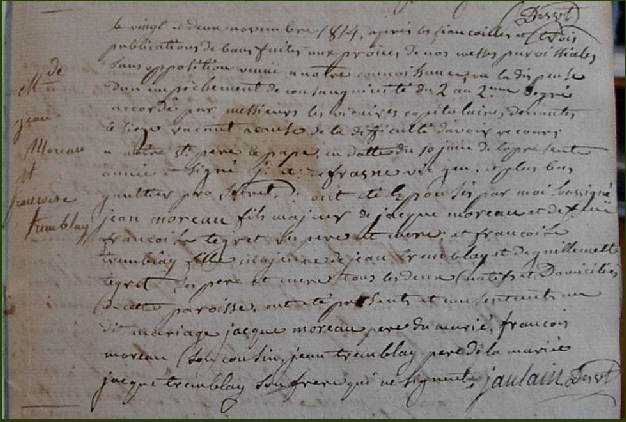 Dervt
le vingt et deux novembre 1814, après les fiançailles et trois
publications de bans faites aux prônes de nos messes paroissiales
sans opposition venue a notre connoissance, vu la dispense
d'un empêchement de consanguinité du 2 au 2me degré
accordé par messieurs les vicaires capitulaires, de nantes
le siege vacant a cause de la difficulté d'avoir recours
a notre st pere le pape, en datte du 10 juin de la presente
année signé vic gen. et plus bas
gaultier pro secret. ont été épousés par moi soussigné
jean moreau fils majeur de jacque moreau et de
francoise legret ses pere et mere et francoise
tremblay fille majeure de jean tremblay et de guillemette
legret ses pere et mere tous les deux natifs et domiciliés
de cette paroisse, ont été présents et consentants au
dit mariage jacque moreau pere du marié, francois
moreau son cousin, jean tremblay pere de la mariée
jacque tremblay son frere qui ne signent, jaulain Dervt
M de
jean
Moreau
et
francoise
tremblay